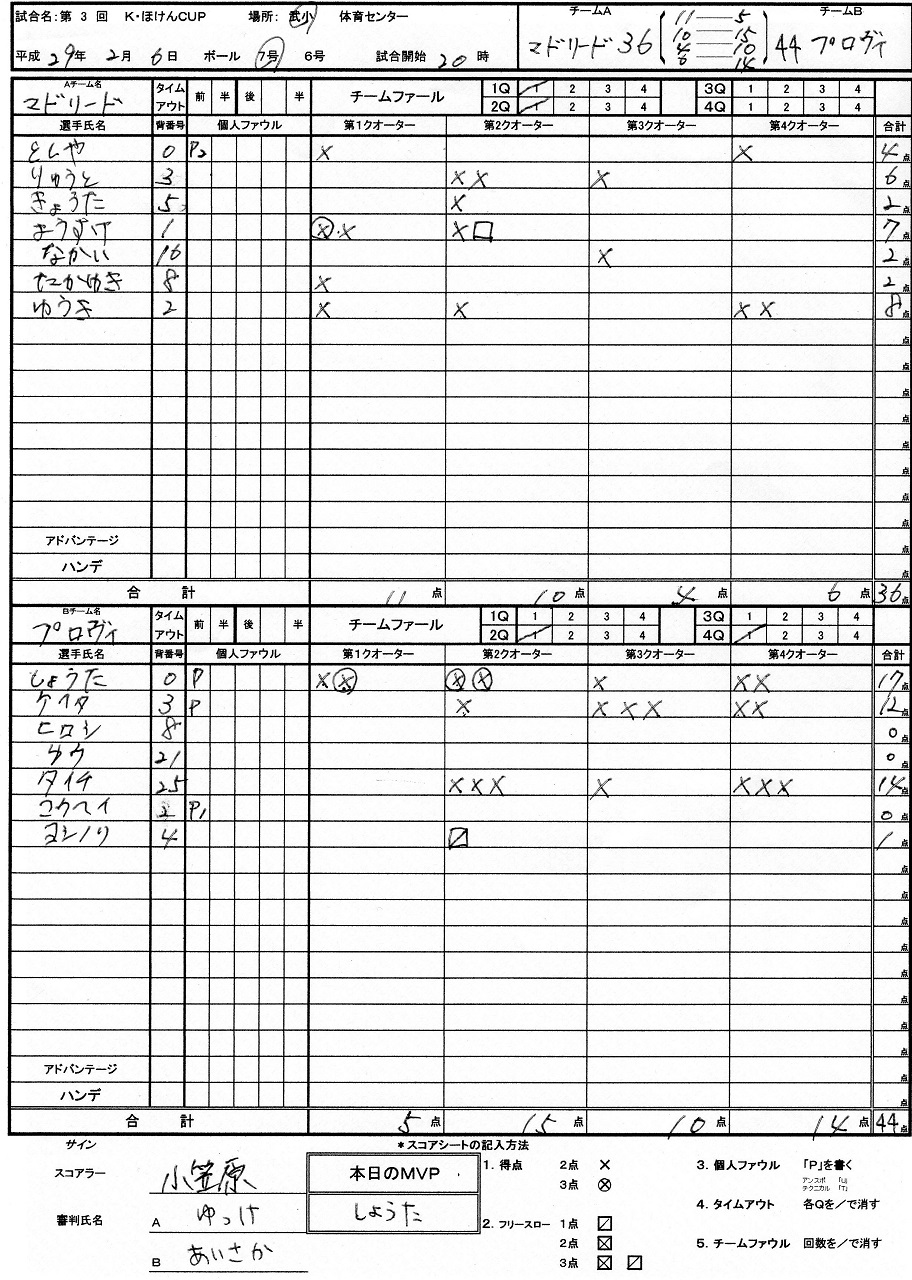 試合名:第 3 回 K・ほけんCUP 場所: 武小 体育センター
平成 29年 2月 6日 ボール 7号 6号 試合開始 20時
チームA チームB
マドリード 36 44 プロヴィ
11 — 5
10 — 15
4 — 10
6 — 14
Aチーム名 マドリード タイムアウト 前 半 後 半 チームファール 1Q 1 2 3 4 3Q 1 2 3 4
2Q 1 2 3 4 4Q 1 2 3 4
選手氏名 背番号 個人ファウル 第1クオーター 第2クオーター 第3クオーター 第4クオーター 合計
としや 0 P2 × × 4点
りゅうと 3 ×× × 6点
きょうた 5 × 2点
ようすけ 1 ⊗× ×□ 7点
なかい 16 × 2点
たかゆき 8 × 2点
ゆうき 2 × × ×× 8点
点
点
点
点
点
点
点
点
アドバンテージ 点
ハンデ 点
合 計 11点 10点 4点 6点 36点
Bチーム名 プロヴィ タイムアウト 前 半 後 半 チームファール 1Q 1 2 3 4 3Q 1 2 3 4
2Q 1 2 3 4 4Q 1 2 3 4
選手氏名 背番号 個人ファウル 第1クオーター 第2クオーター 第3クオーター 第4クオーター 合計
しょうた 0 P ×⊗ ⊗⊗ × ×× 17点
ケイタ 3 P × ××× ×× 12点
ヒロシ 8 0点
ユウ 21 0点
タイチ 25 ××× × ××× 14点
コウヘイ 2 P1 0点
ヨシノリ 4 〼 1点
点
点
点
点
点
点
点
点
アドバンテージ 点
ハンデ 点
合 計 5点 15点 10点 14点 44点
サイン
スコアラー 小笠原
審判氏名 A ゆっけ
B あいさか
本日のMVP
しょうた
*スコアシートの記入方法
1. 得点 2点 ×
3点 ⊗
2. フリースロー 1点 〼
2点 ☒
3点 ☒ 〼
3. 個人ファウル 「P」を書く
アンスポ 「U」
テクニカル 「T」
4. タイムアウト 各Qを/で消す
5. チームファウル 回数を/で消す